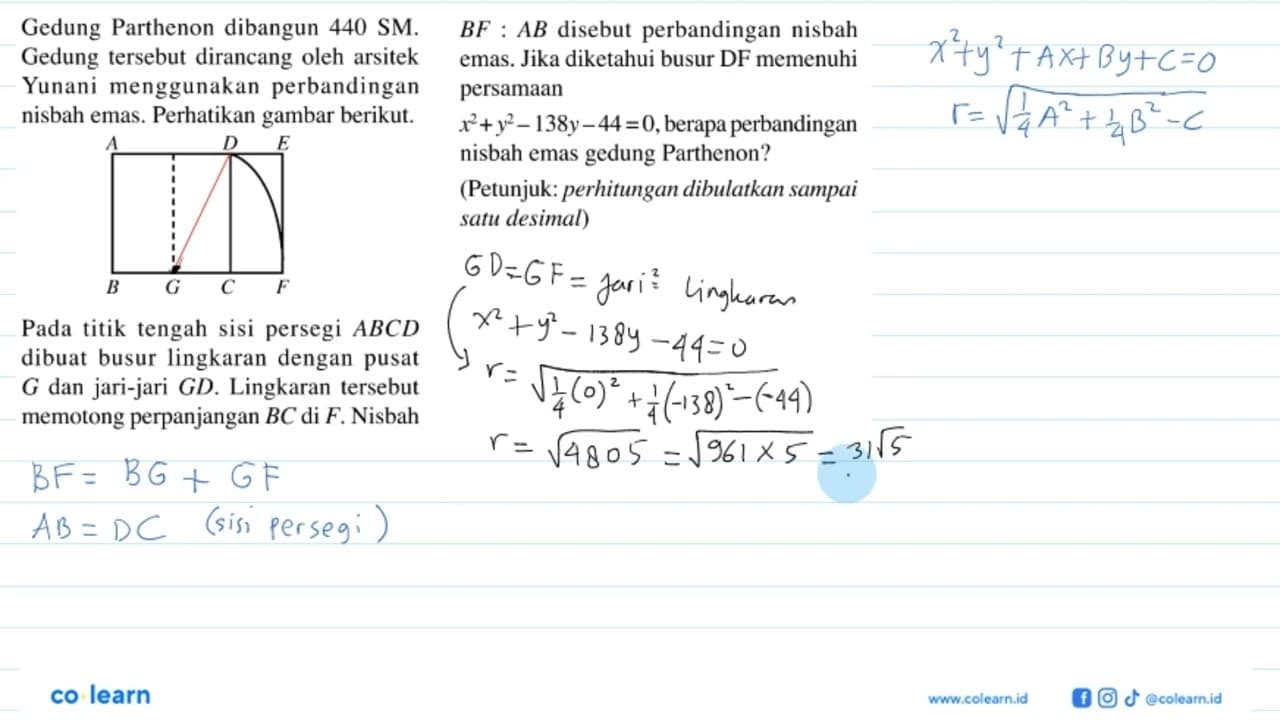 Gedung Parthenon dibangun 440 SM.
Gedung tersebut dirancang oleh arsitek
Yunani menggunakan perbandingan
nisbah emas. Perhatikan gambar berikut.
A D E
B G C F
Pada titik tengah sisi persegi ABCD
dibuat busur lingkaran dengan pusat
G dan jari-jari GD. Lingkaran tersebut
memotong perpanjangan BC di F. Nisbah
BF = BG + GF
AB = DC (sisi persegi)
BF : AB disebut perbandingan nisbah
emas. Jika diketahui busur DF memenuhi
persamaan
x²+y²–138y–44=0, berapa perbandingan
nisbah emas gedung Parthenon?
(Petunjuk: perhitungan dibulatkan sampai
satu desimal)
GD=GF = jari² lingkaran
x²+y²-138y-44=0
r= √(1/4(0)²+1/4(-138)²-(-44))
r= √4805 = √961×5 = 31√5
x²+y²+Ax+By+C=0
r= √(1/4A²+1/4B²-C)
co learn
www.colearn.id
@colearn.id